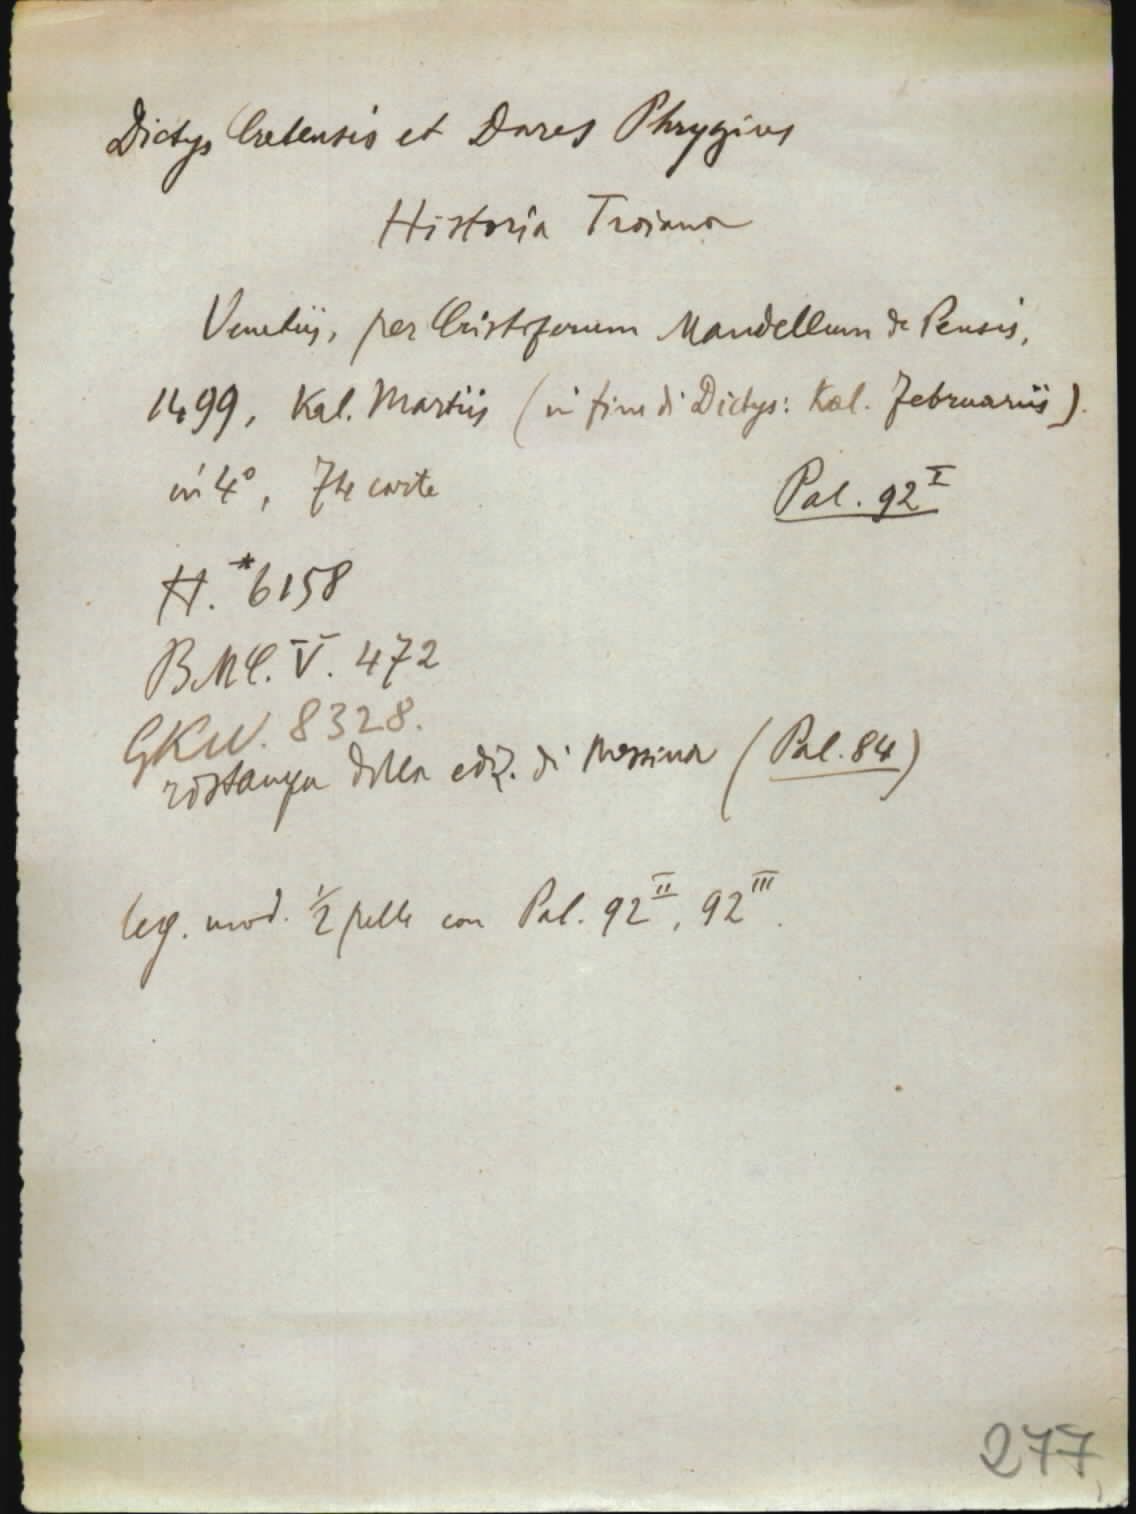 Dictys Cretensis et Dares Phrygius
Historia Troiana
Venetiis, per Cristoforum Mandellum de Pensis,
1499, Kal. Martiis (in fine di Dictys: Kal. Februariis).
in 4°, 74 carte
Pal. 92 I
H. *6158
BMC. V. 472
GKW. 8328.
ristampa della ediz. di Messina (Pal. 84)
leg. mod. 1/2 pelle con Pal. 92 II, 92 III.
277